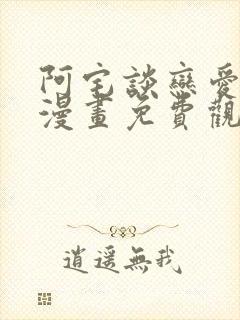 阿宅談戀愛
漫畫免費觀
逍遥無我